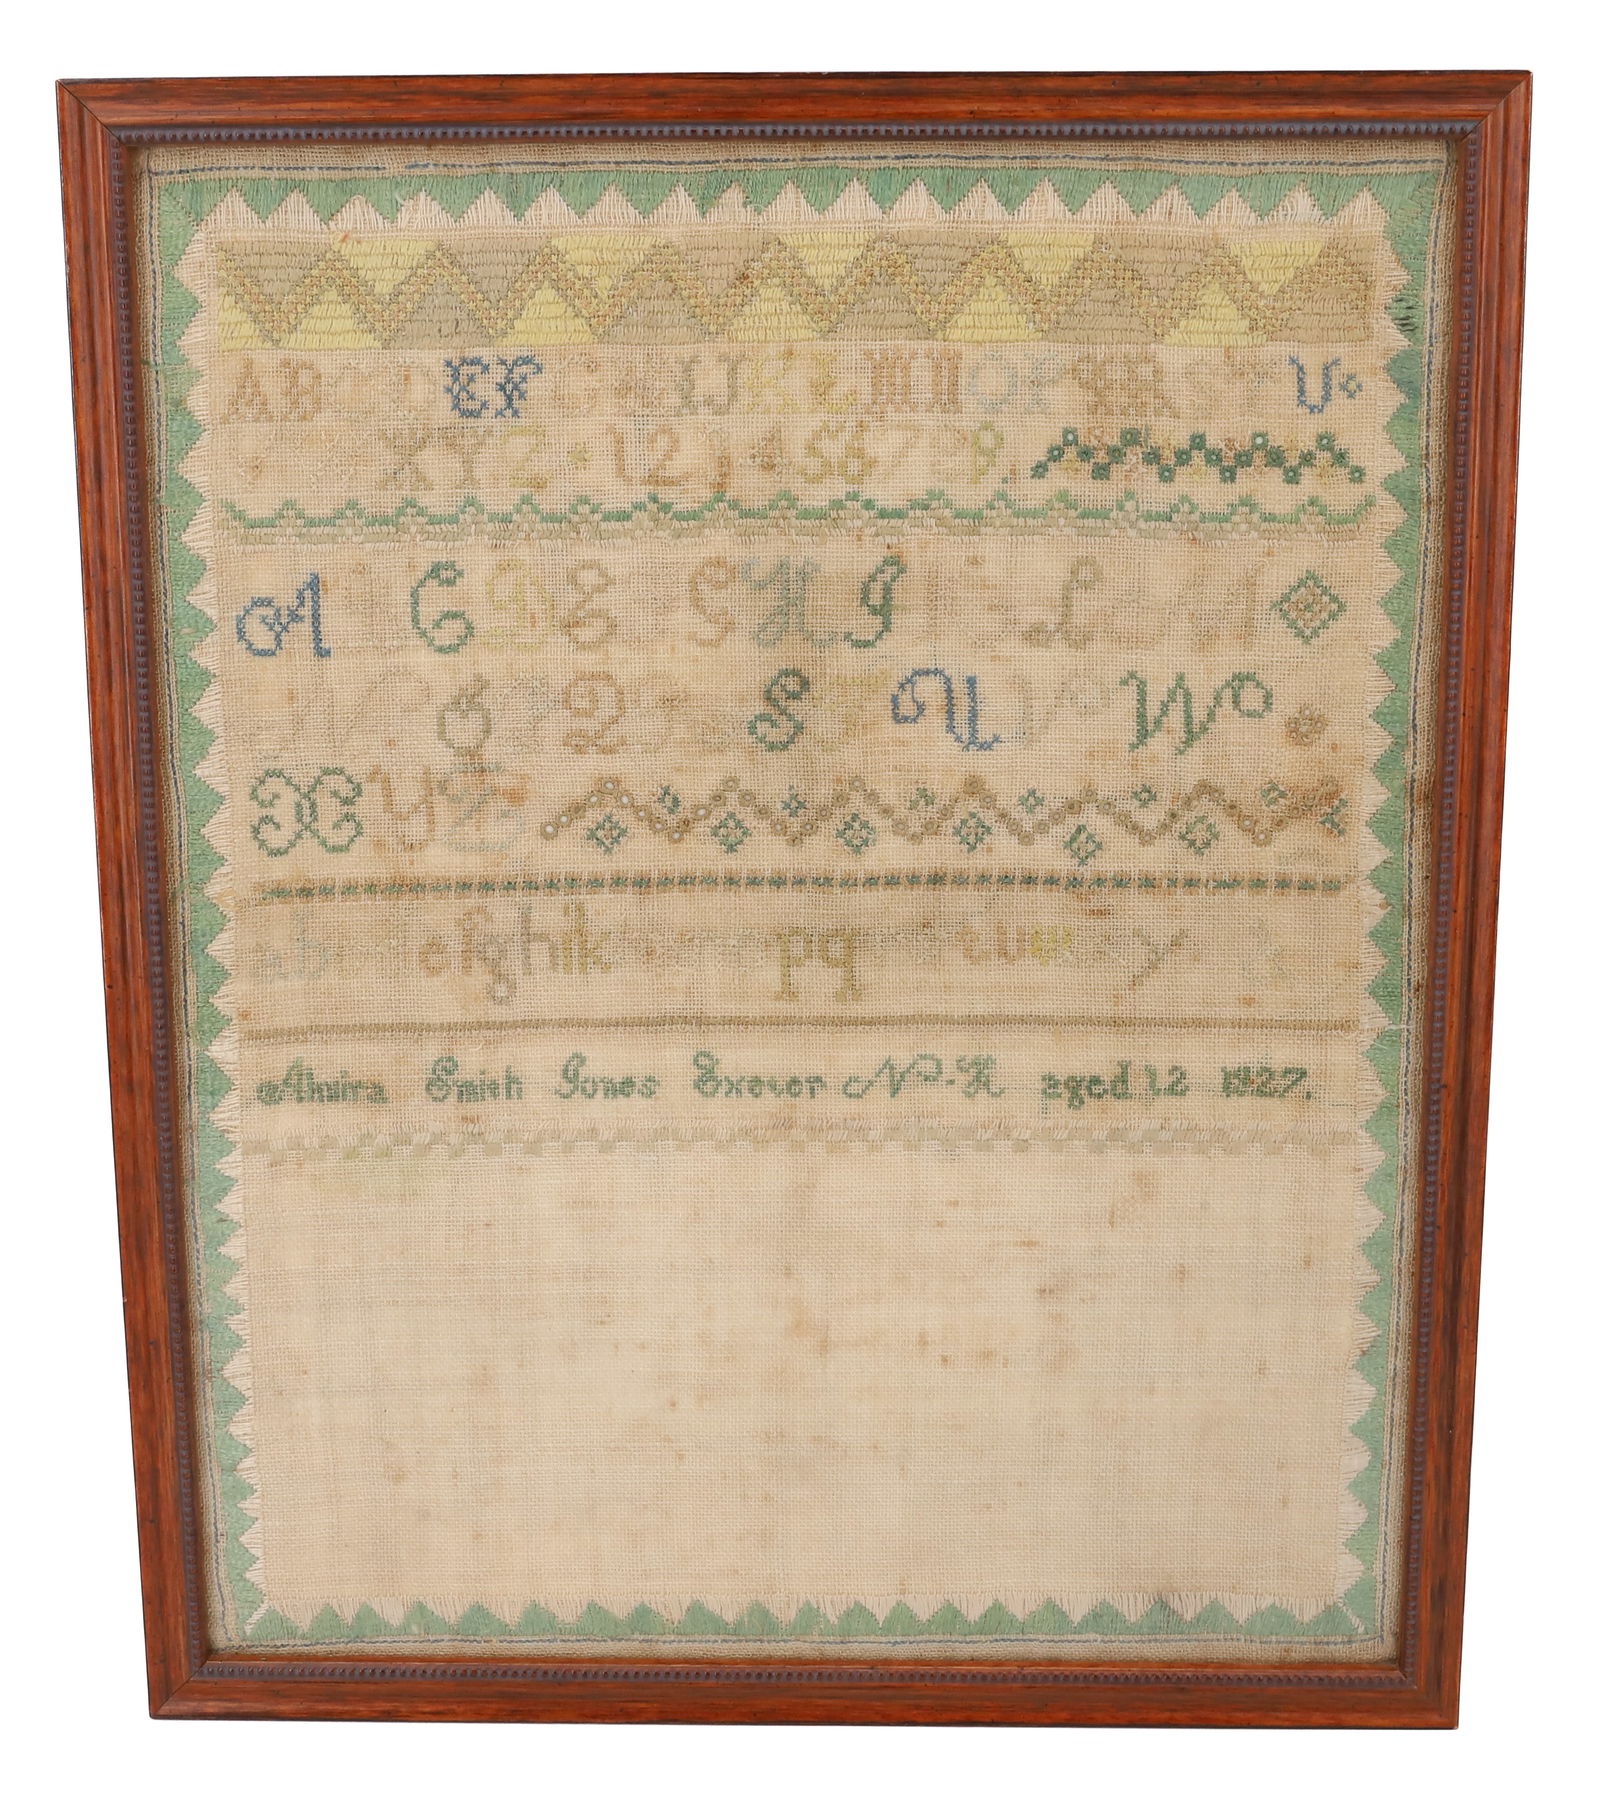 A B C D E F I J K L M N O P Q R U
X Y Z 1 2 3 4 5 6 7 8 9
A C D E G H I L
O Q S U V W
X Y Z
a b e f g h i k p q t u w y
Almira Smith Jones Exeter N-H aged 12 1827.